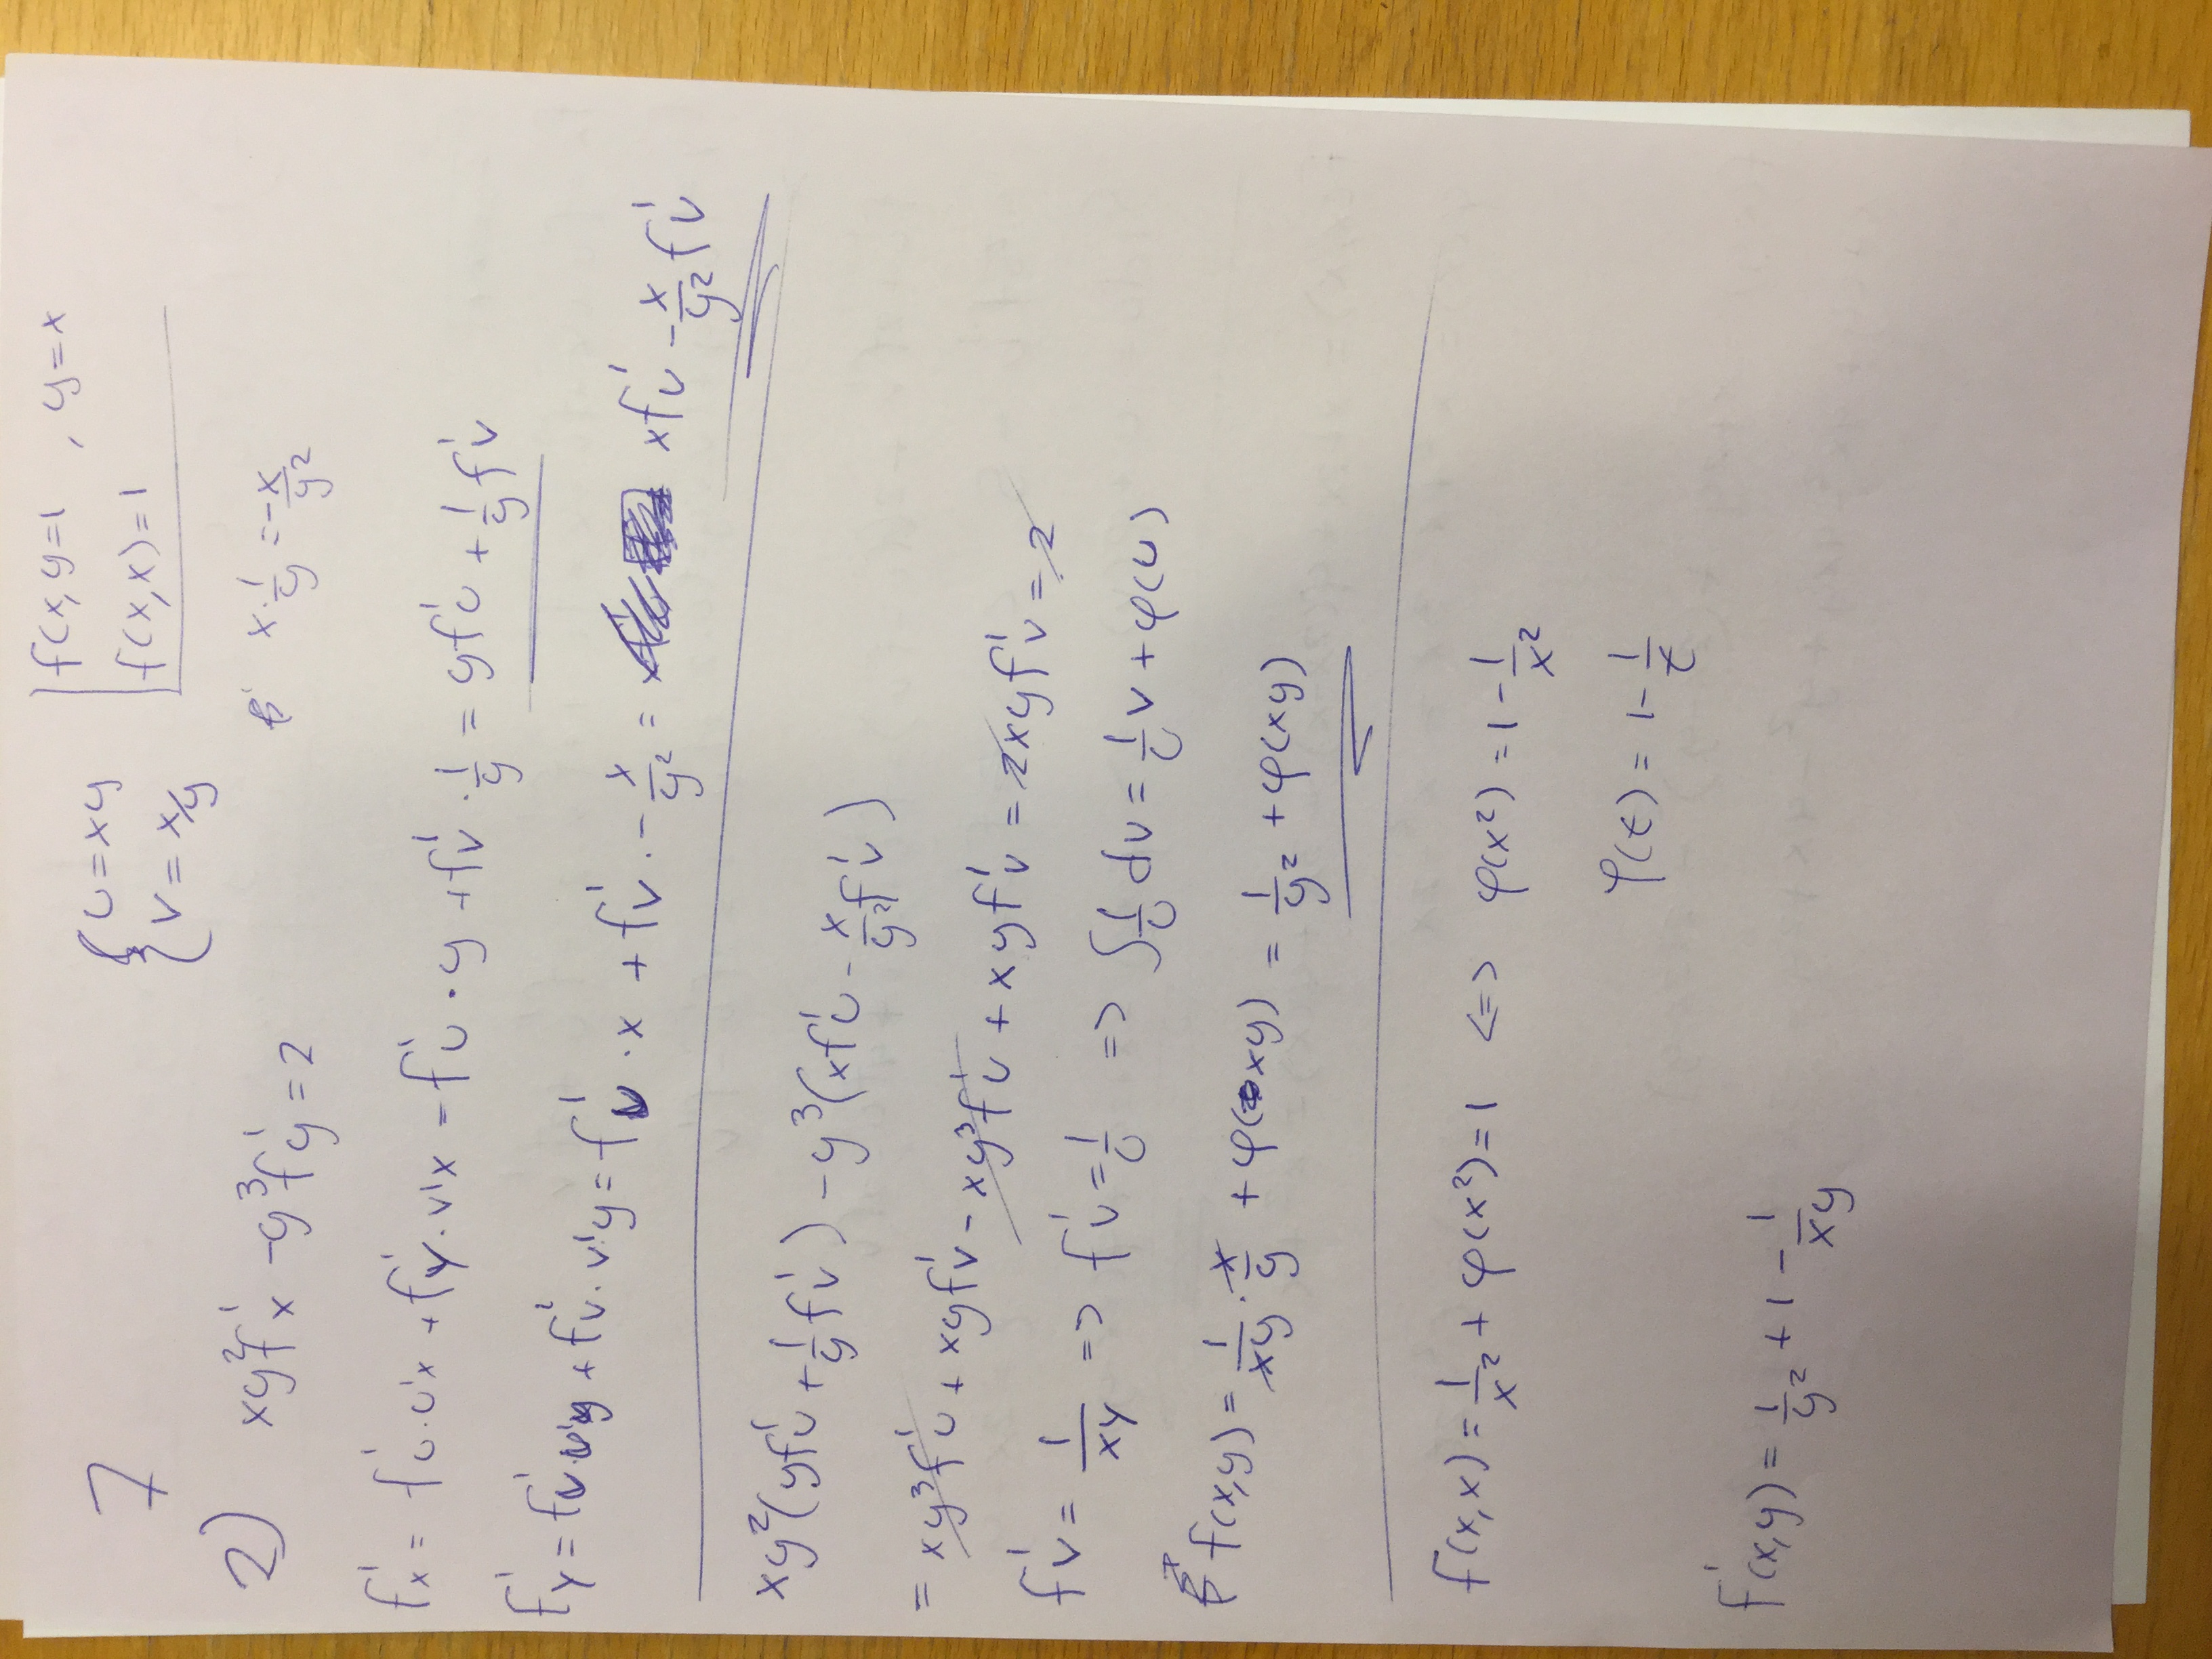 7
{ u = xy
v = x/y
f(x,y=1 , y=x
f(x,x)=1
2) xy²f'x - y³f'y = 2
x·1/y = -x/y²
f'x = f'u·u'x + f'y·v'x = f'u·y + f'v·1/y = yf'u + 1/y f'v
f'y = f'u·u'y + f'v·v'y = f'u·x + f'v·-x/y² = xf'u - x/y² f'v
xy²(yf'u + 1/y f'v) - y³(xf'u - x/y² f'v)
= xy³f'u + xyf'v - xy³f'u + xyf'v = 2xyf'v = 2
f'v = 1/xy => f'v = 1/u => ∫1/u dv = 1/u v + φ(u)
f(x,y) = 1/xy · x/y + φ(xy) = 1/y² + φ(xy)
f(x,x) = 1/x² + φ(x²) = 1 <=> φ(x²) = 1 - 1/x²
φ(t) = 1 - 1/t
f'(x,y) = 1/y² + 1 - 1/xy